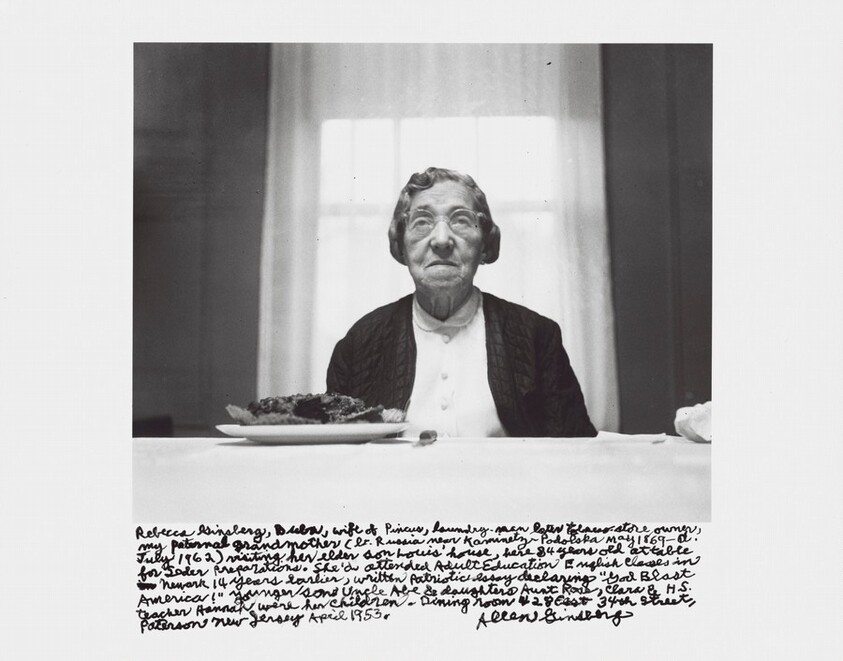 Rebecca Ginsberg, Buba, wife of Pincus, laundry-man later tobacco-store owner,
my paternal grandmother (b. Russia near Kaminetz-Podolska May 1869–d.
July 1962) visiting her elder son Louis' house, here 84 years old at table
for Seder preparations. She'd attended Adult Education English Classes in
Newark 14 years earlier, written Patriotic essay declaring "God Blast
America!" younger son Uncle Abe & daughters Aunt Rose, Clara & H.S.
teacher Hannah were her children - Dining room 428 East 34th Street,
Paterson New Jersey April 1953.
Allen Ginsberg